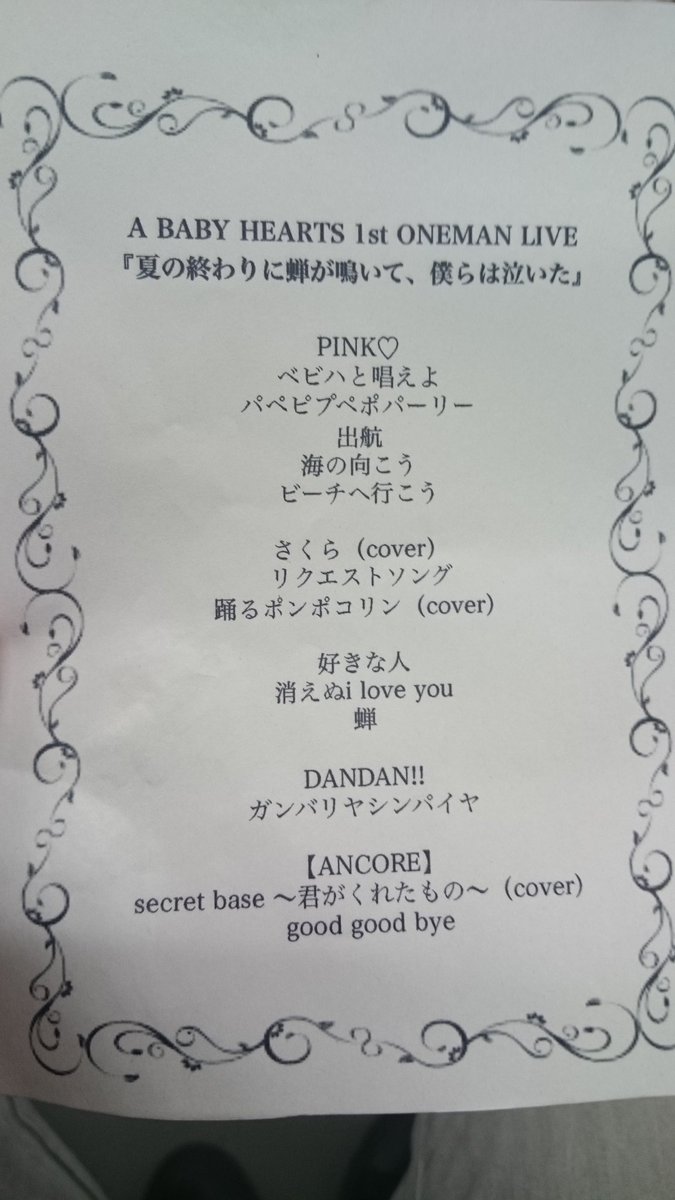 A BABY HEARTS 1st ONEMAN LIVE
『夏の終わりに蝉が鳴いて、僕らは泣いた』
PINK♡
ベビハと唱えよ
パペピプペポパーリー
出航
海の向こう
ビーチへ行こう
さくら（cover）
リクエストソング
踊るポンポコリン（cover）
好きな人
消えぬi love you
蝉
DANDAN!!
ガンバリヤシンパイヤ
【ANCORE】
secret base 〜君がくれたもの〜（cover）
good good bye